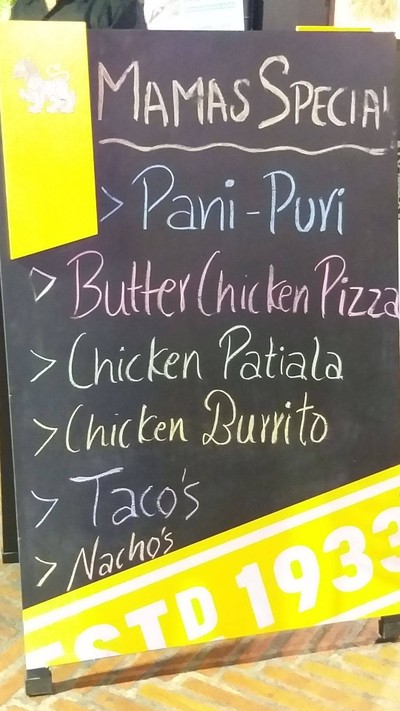 MAMAS SPECIAl
> Pani-Puri
> Butter Chicken Pizza
> Chicken Patiala
> Chicken Burrito
> Taco's
> Nacho's
ESTD 1933